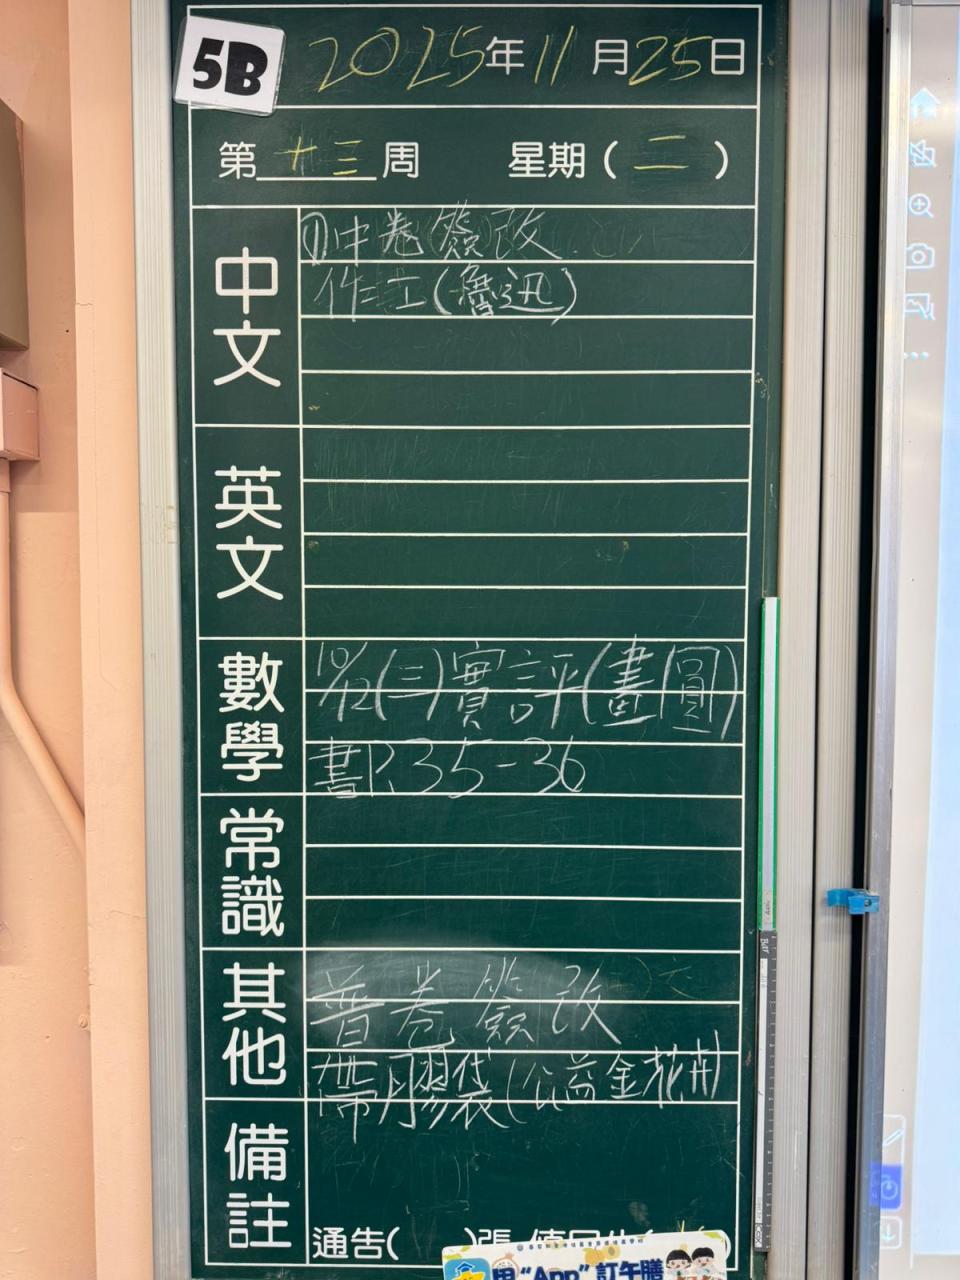 5B
2025年11月25日
第十三周 星期(二)
中文
①中卷簽改
作工(魯迅)
英文
數學
10/12(三)實評(畫圓)
書P.35-36
常識
其他
普卷簽改
帶膠袋(公益金花卉)
備註
通告( )張
用"App"訂午膳